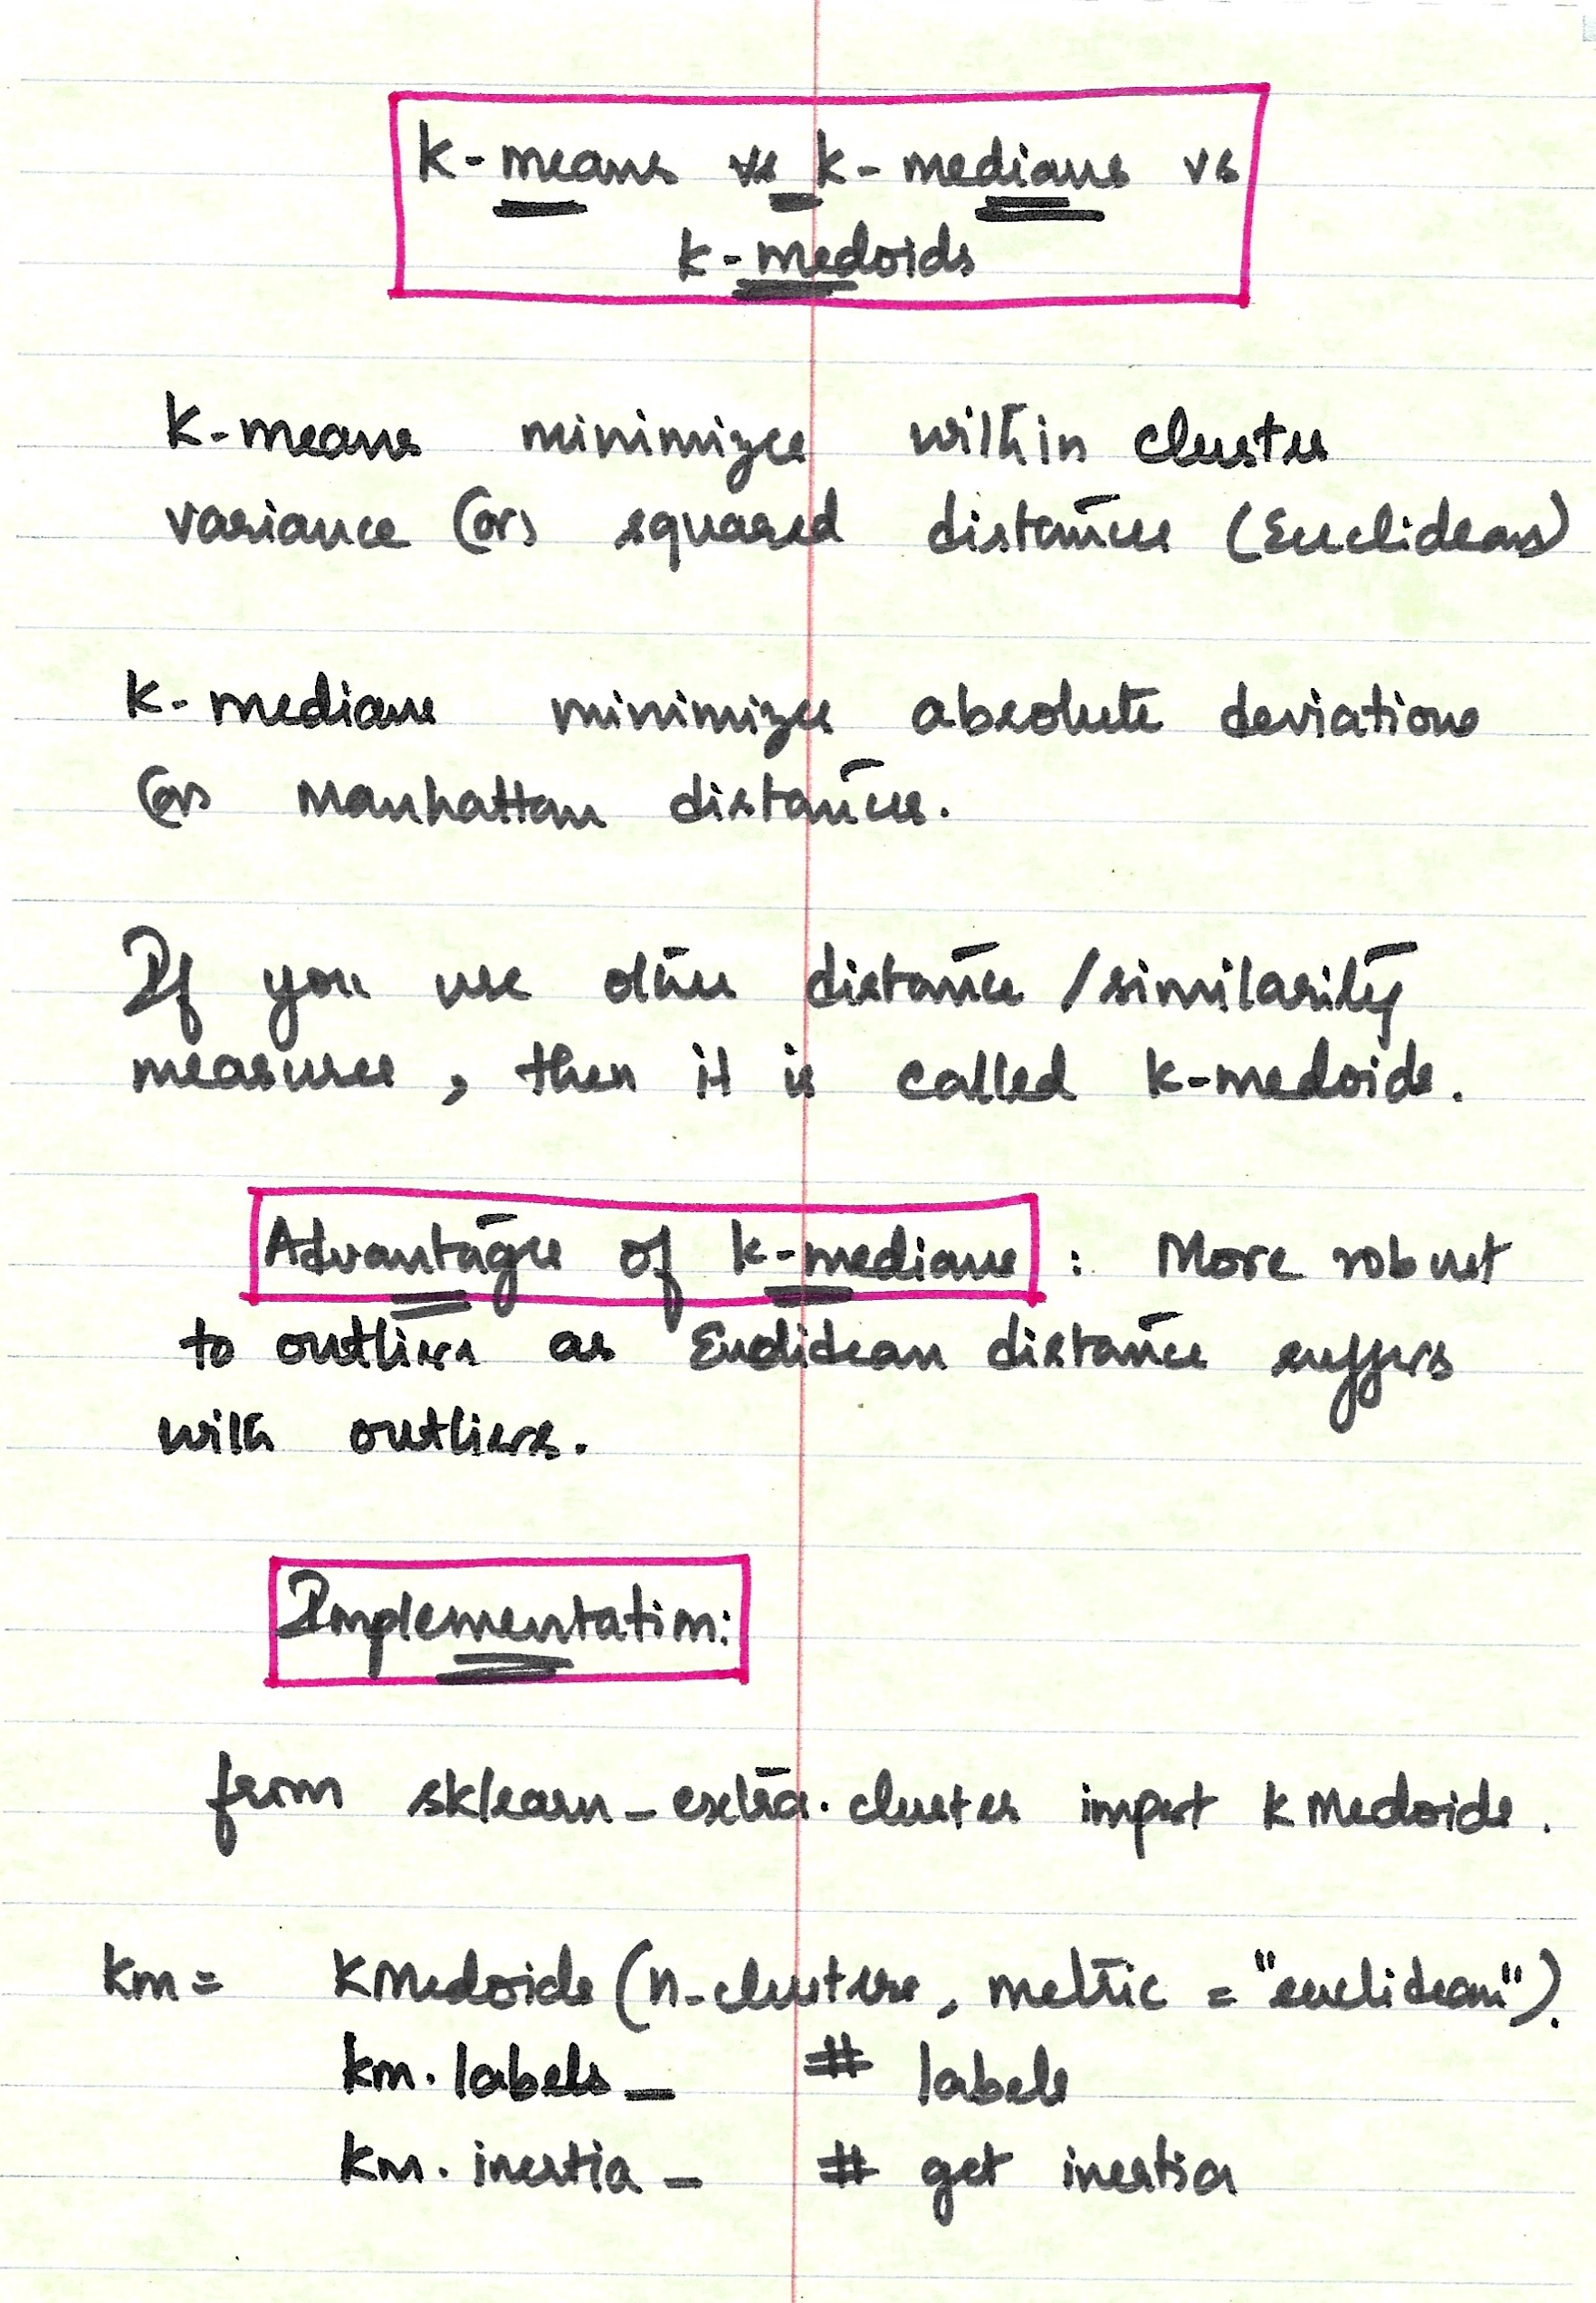 k-means vs k-medians vs
k-medoids
k-means minimizes within cluster
variance (or) squared distances (Euclidean)
k-medians minimizes absolute deviations
(or) Manhattan distances.
If you use other distance / similarity
measures, then it is called k-medoids.
Advantages of k-medians : More robust
to outliers as Euclidean distance suffers
with outliers.
Implementation:
from sklearn_extra.cluster import kMedoids.
km = kMedoids (n-clusters, metric = "euclidean").
km.labels_ # labels
km.inertia_ # get inertia